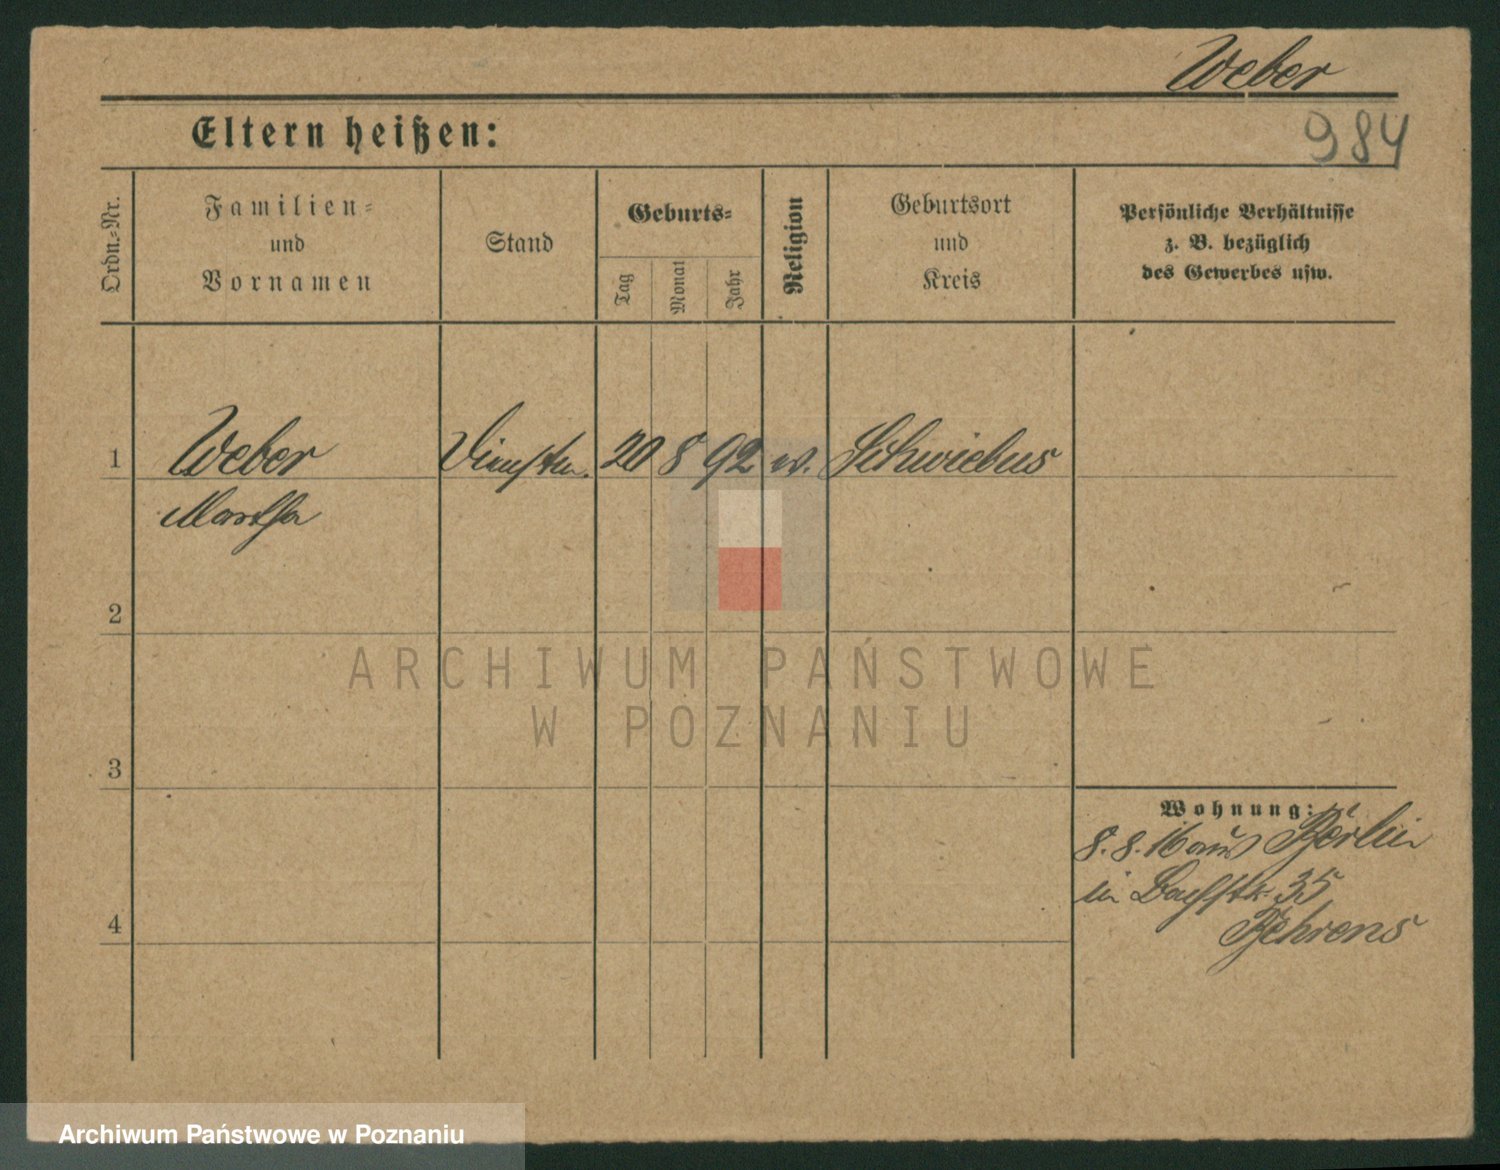 Weber
984
Eltern heißen:
Ordn.-Nr.
Familien-
und
Vornamen
Stand
Geburts-
Tag
Monat
Jahr
Religion
Geburtsort
und
Kreis
Persönliche Verhältnisse
z. B. bezüglich
des Gewerbes usw.
1
Weber
20 8 92
Schwiebus
Martha
2
ARCHIWUM PAŃSTWOWE
W POZNANIU
3
Wohnung:
8. 8. 16 aus Berlin
in 35
Behrens
4
Archiwum Państwowe w Poznaniu